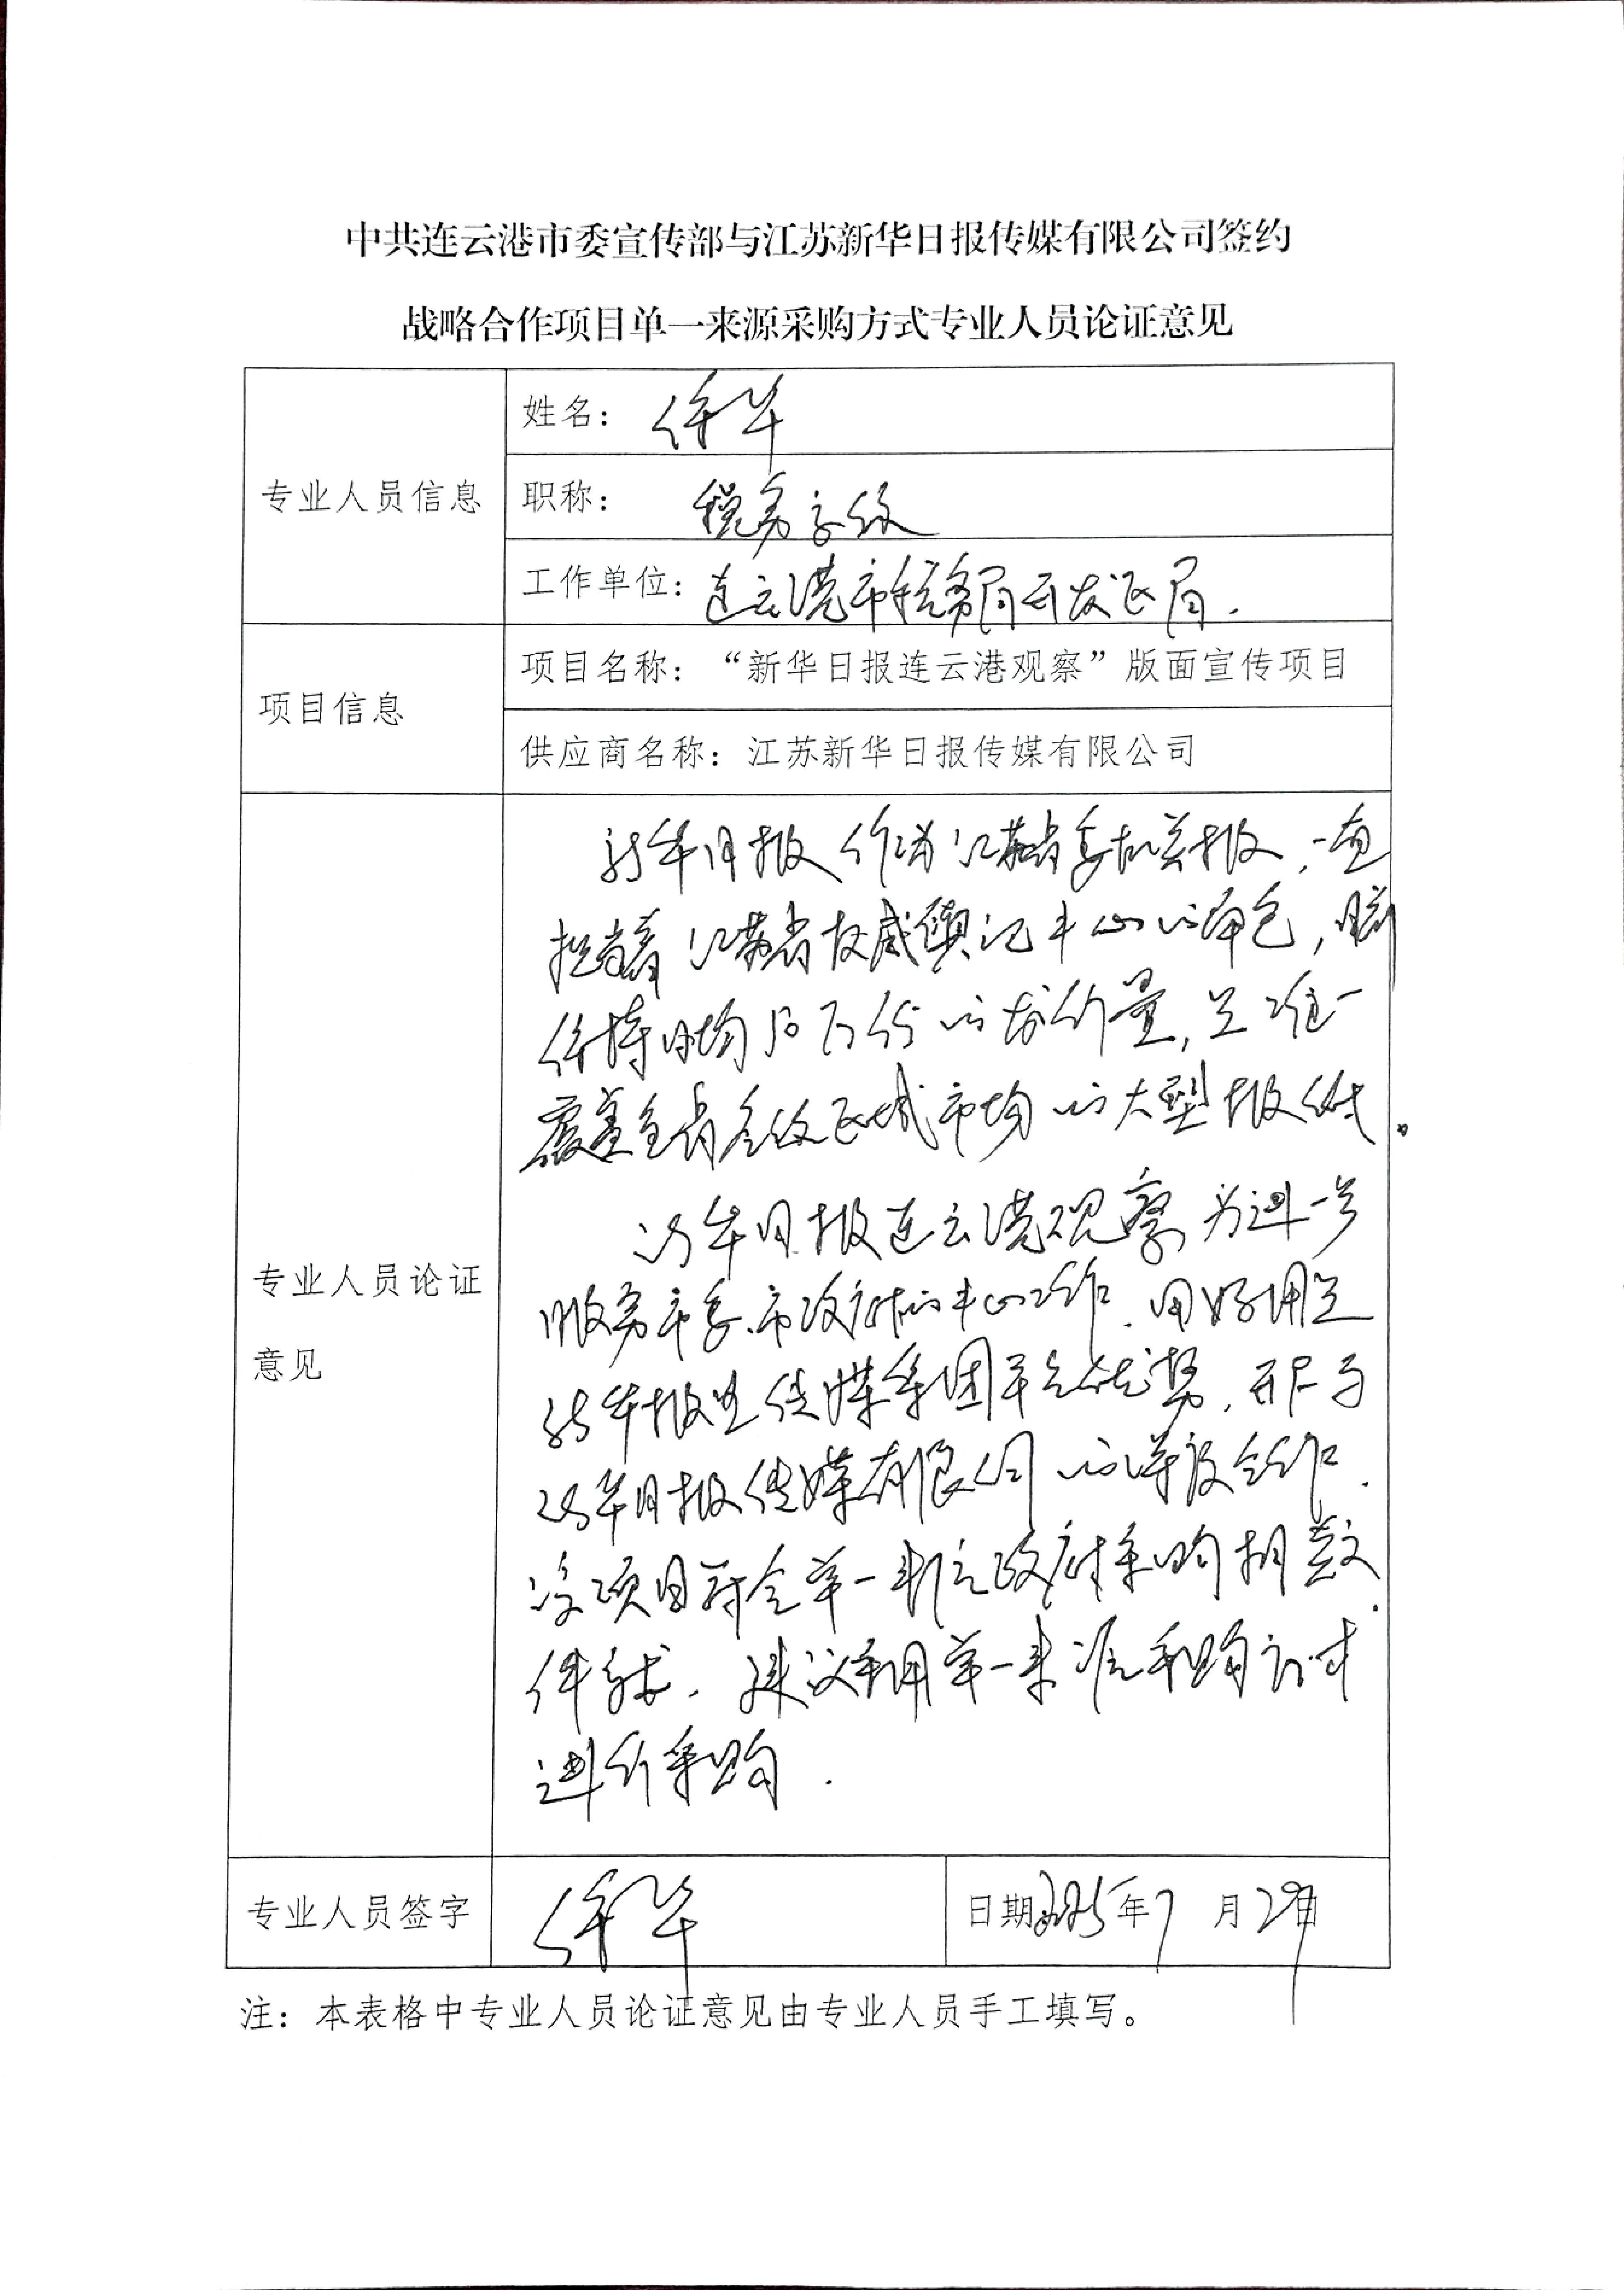 中共连云港市委宣传部与江苏新华日报传媒有限公司签约
战略合作项目单一来源采购方式专业人员论证意见
专业人员信息
姓名：
职称：税务
工作单位：连云港市税务局开发区局.
项目信息
项目名称：“新华日报连云港观察”版面宣传项目
供应商名称：江苏新华日报传媒有限公司
专业人员论证
意见
新华日报作为江苏省委机关报，一直
担当着江苏省权威舆论中心的角色，
保持日均50万份的发行量，是唯一
覆盖全省各级区域市场的大型报纸。
新华日报连云港观察为进一步
服务市委、市政府的中心工作，用好用足
新华报业传媒集团平台优势，开展与
新华日报传媒有限公司的深度合作.
该项目符合单一来源政府采购相关文
件要求，建议采用单一来源采购方式
进行采购.
专业人员签字
日期2025年7月29日
注：本表格中专业人员论证意见由专业人员手工填写。